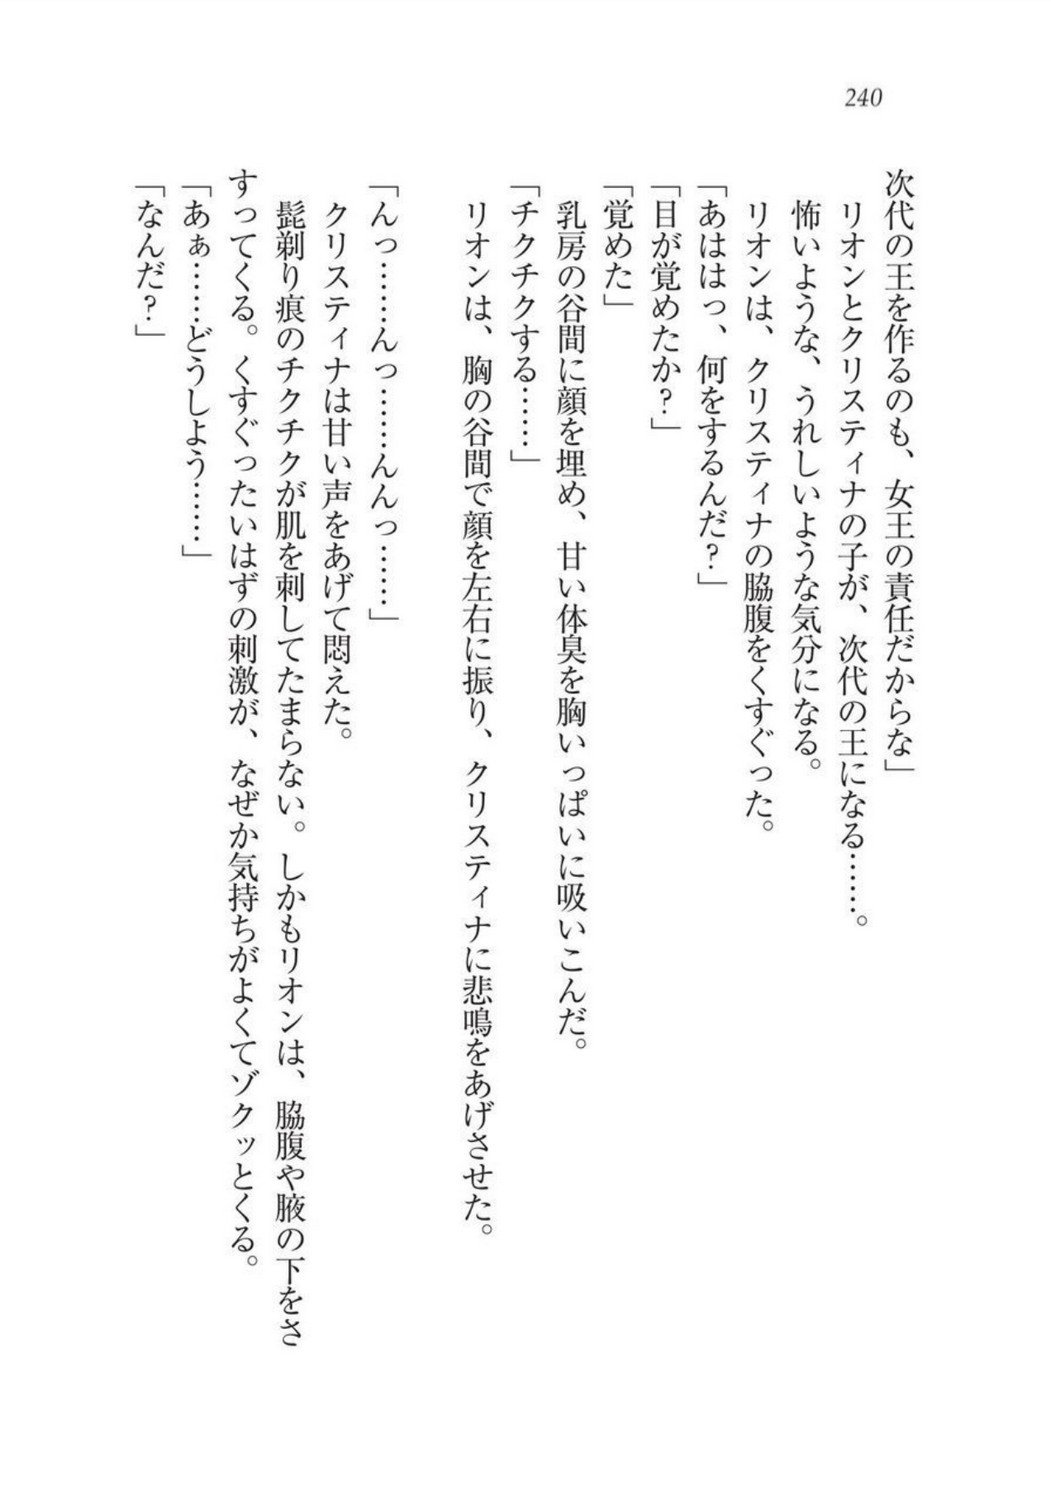 240
次代の王を作るのも、女王の責任だからな」
リオンとクリスティナの子が、次代の王になる……。
怖いような、うれしいような気分になる。
リオンは、クリスティナの脇腹をくすぐった。
「あははっ、何をするんだ？」
「目が覚めたか？」
「覚めた」
乳房の谷間に顔を埋め、甘い体臭を胸いっぱいに吸いこんだ。
「チクチクする……」
リオンは、胸の谷間で顔を左右に振り、クリスティナに悲鳴をあげさせた。
「んっ……んっ……んんっ……」
クリスティナは甘い声をあげて悶えた。
髭剃り痕のチクチクが肌を刺してたまらない。しかもリオンは、脇腹や腋の下をさ
すってくる。くすぐったいはずの刺激が、なぜか気持ちがよくてゾクッとくる。
「あぁ……どうしよう……」
「なんだ？」